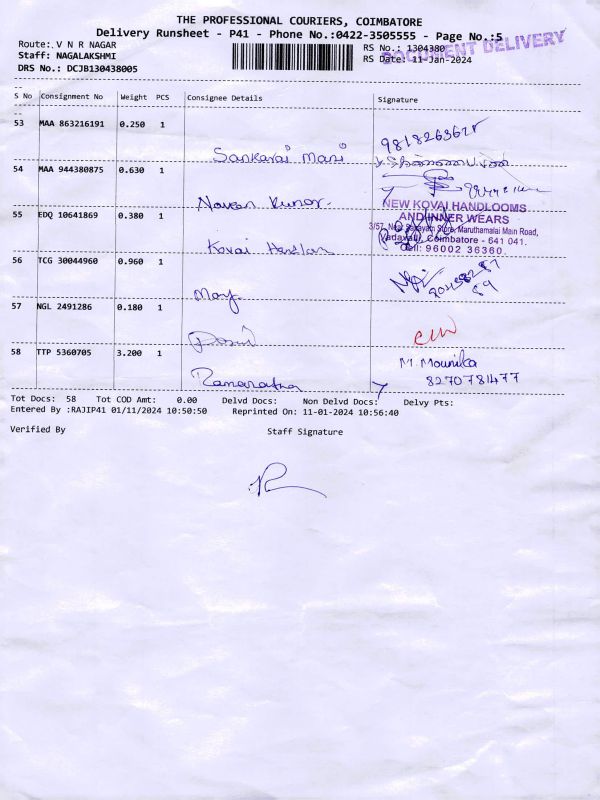 THE PROFESSIONAL COURIERS, COIMBATORE
Delivery Runsheet - P41 - Phone No.:0422-3505555 - Page No.:5
Route: V N R NAGAR
RS No.: 1304380
DOCUMENT DELIVERY
Staff: NAGALAKSHMI
RS Date: 11-Jan-2024
DRS No.: DCJB130438005
S No Consignment No Weight PCS Consignee Details Signature
53 MAA 863216191 0.250 1
Sankarai Mani
54 MAA 944380875 0.630 1
Naveen Kumar.
NEW KOVAI HANDLOOMS
AND INNER WEARS
55 EDQ 10641869 0.380 1
3/57, New Store, Maruthamalai Main Road,
Vadavalli, Coimbatore - 641 041.
Cell: 96002 36360
Kovai
56 TCG 30044960 0.960 1
57 NGL 2491286 0.180 1
58 TTP 5360705 3.200 1
M. Mounika
8270781477
Tot Docs: 58 Tot COD Amt: 0.00 Delvd Docs: Non Delvd Docs: Delvy Pts:
Entered By :RAJIP41 01/11/2024 10:50:50 Reprinted On: 11-01-2024 10:56:40
Verified By Staff Signature